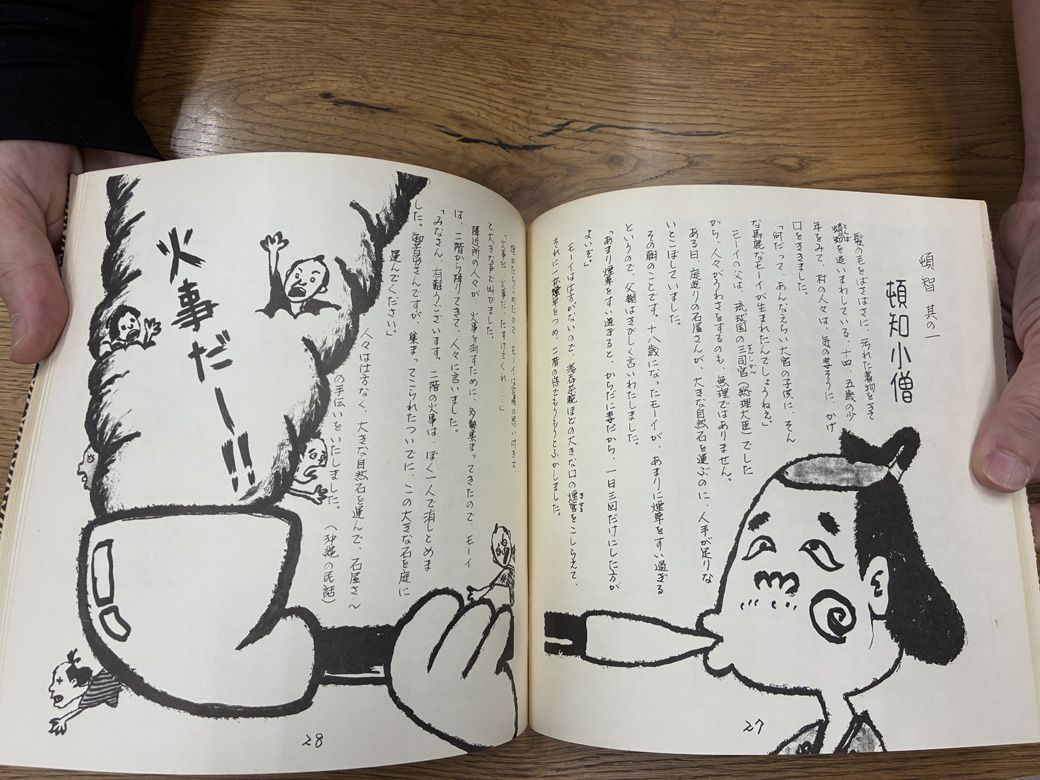 頓智 其の一
頓知小僧
髪の毛をばさばさに、汚れた着物をきて
を追いまわしている、十四、五歳の少
年をみて、村の人々は、気の毒そうに、かげ
口をききました。
「何だって、あんなえらい大官の子供に、そん
な馬鹿なモーイが生まれたんでしょうねえ」
モーイの父は、琉球国の三司官（総理大臣）でした
から、人々がうわさをするのも、無理ではありません。
ある日、庭造りの石屋さんが、大きな自然石を運ぶのに、人手が足りな
いとこぼしていました。
その朝のことです。十八歳になったモーイが、あまりに煙草をすい過ぎる
というので、父親はきびしく言いわたしました。
「あまり煙草をすい過ぎると、からだに毒だから、一日三回だけにした方が
よいぞ」
モーイは仕方がないので、湯呑茶碗ほどの大きな口の煙管をこしらえて、
それに一杯煙草をつめ、二階の窓でもうもうとふかしました。
モーイは
「火事だ、火事だ、たすけてくれ……」
と大きな声で叫びました。
隣近所の人々が、火事を消すために、多勢集まってきたので、モーイ
は、二階から降りてきて、人々に言いました。
「みなさん、有難うございます。二階の火事は、ぼく一人で消しとめま
した。御苦労さんですが、集まってこられたついでに、この大きな石を庭に
運んでください」
人々は仕方なく、大きな自然石を運んで、石屋さん
の手伝いをいたしました。
（沖縄の民話）
火事だー!!
27
28